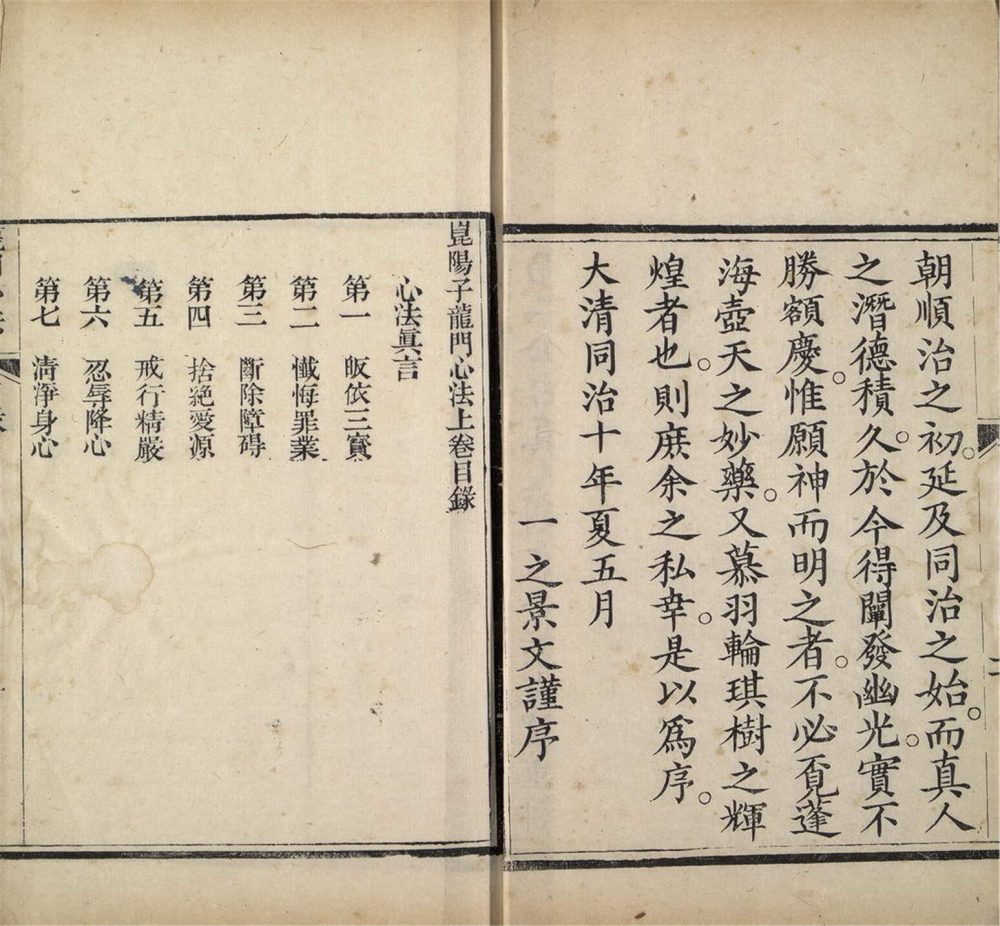 朝順治之初。延及同治之始。而真人
之潛德積久。於今得闡發幽光。實不
勝額慶。惟願神而明之者。不必覔蓬
海壺天之妙藥。又慕羽輪琪樹之輝
煌者也。則庶余之私幸。是以爲序。
大清同治十年夏五月
一之景文謹序
崑陽子龍門心法上卷目錄
心法眞言
第一 皈依三寶
第二 懺悔罪業
第三 斷除障碍
第四 捨絶愛源
第五 戒行精嚴
第六 忍辱降心
第七 淸淨身心